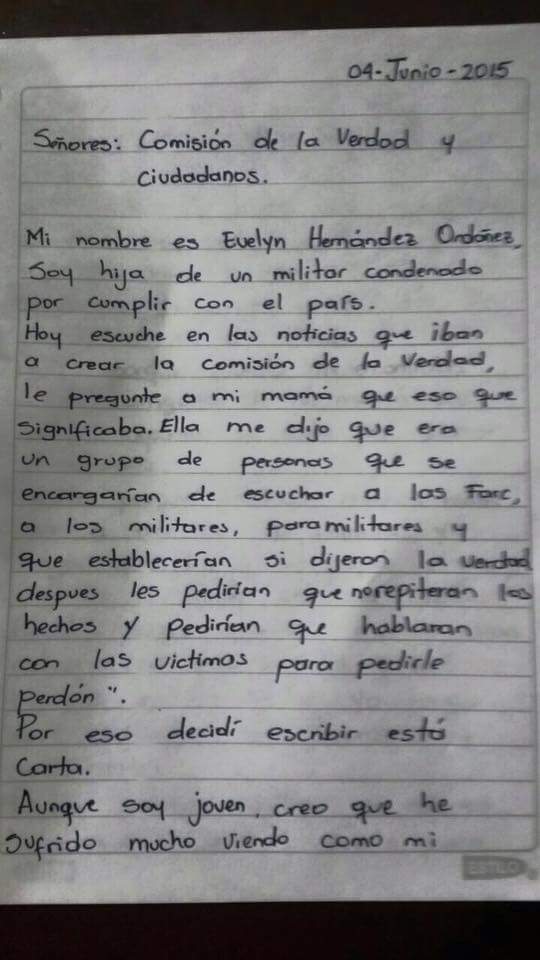 04-Junio-2015
Señores: Comisión de la Verdad y
Ciudadanos.
Mi nombre es Evelyn Hernández Ordóñez,
Soy hija de un militar condenado
por cumplir con el país.
Hoy escuche en las noticias que iban
a crear la comisión de la Verdad,
le pregunte a mi mamá que eso que
significaba. Ella me dijo que era
un grupo de personas que se
encargarían de escuchar a las Farc,
a los militares, paramilitares y
que establecerían si dijeron la verdad
despues les pedirian que norepiteran los
hechos y pedirían que hablaran
con las victimas para pedirle
perdón".
Por eso decidí escribir está
Carta.
Aunque soy joven, creo que he
sufrido mucho viendo como mi
ESTILO